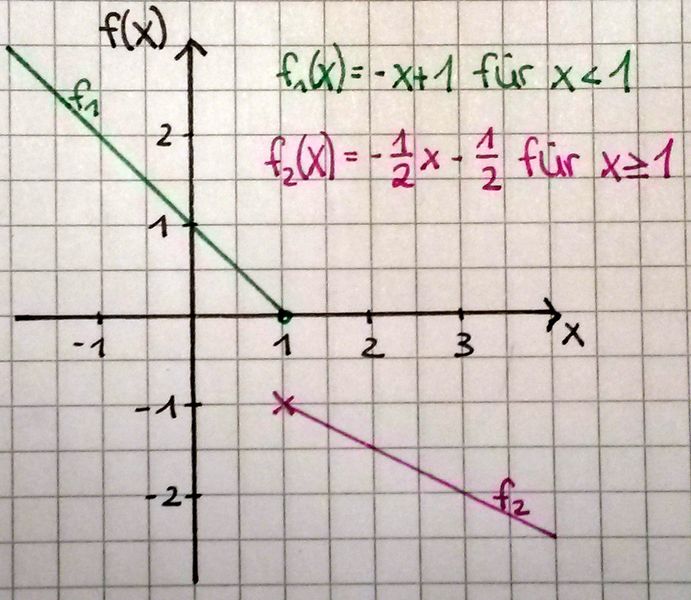 f(x)
f₁(x) = -x+1 für x < 1
f₁
2
f₂(x) = -1/2 x - 1/2 für x ≥ 1
1
-1 1 2 3 x
-1
-2
f₂